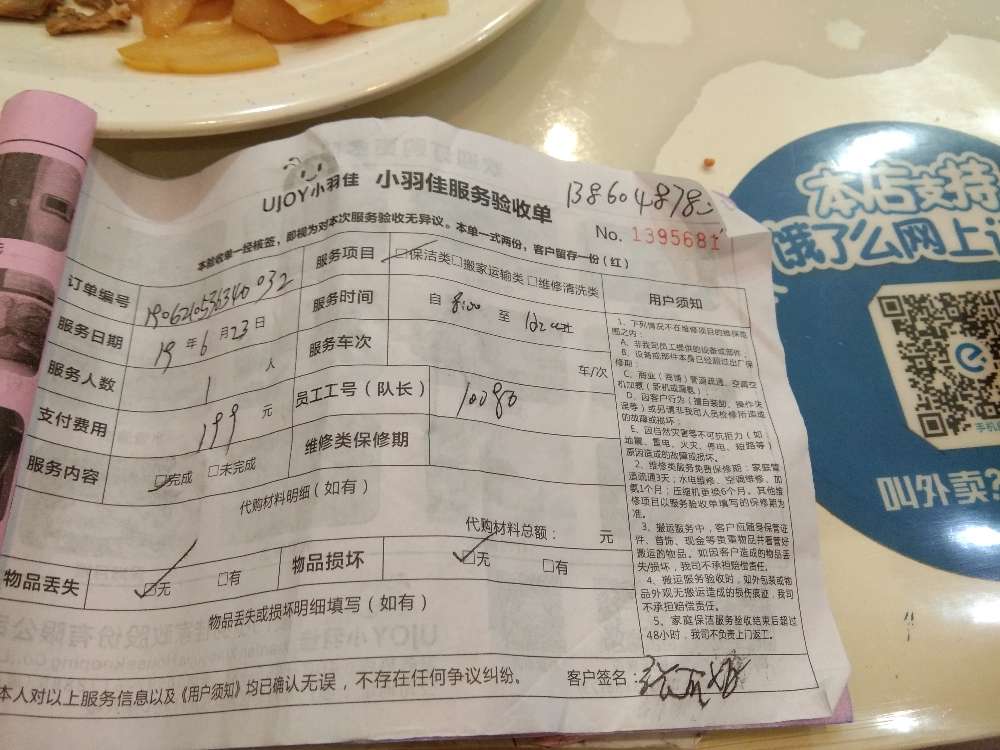 UJOY小羽佳 小羽佳服务验收单
No. 139568
本验收单一经核签，即视为对本次服务验收无异议。本单一式两份，客户留存一份（红）
订单编号
服务项目 □保洁类□搬家运输类□维修清洗类
用户须知
服务日期 19 年 6 月 23 日
服务时间 自 8:00 至
服务人数 1 人
服务车次 车/次
支付费用 199 元
员工工号（队长）
服务内容 □完成 □未完成
维修类保修期
代购材料明细（如有）
代购材料总额： 元
物品丢失 □无 □有
物品损坏 □无 □有
物品丢失或损坏明细填写（如有）
本人对以上服务信息以及《用户须知》均已确认无误，不存在任何争议纠纷。
客户签名：
1、下列情况不在维修项目的维保范
围之内：
A、非我司员工提供的设备或部件；
B、设备或部件本身已经超过出厂保
修期；
C、商业（商铺）管道疏通、空调空
机加氨（新机或漏氨）；
D、因客户行为（擅自装卸、操作失
误等）或另请非我司人员检修所造成
的故障或损坏；
E、因自然灾害等不可抗拒力（如：
地震、雷电、火灾、停电、短路等）
原因造成的故障或损坏。
2、维修类服务免费保修期：家庭管
道疏通3天；水电维修、空调维修、加
氨1个月；压缩机更换6个月。其他维
修项目以服务验收单填写的保修期为
准。
3、搬运服务中，客户应随身保管证
件、首饰、现金等贵重物品并看管好
搬运的物品。如因客户造成的物品丢
失/损坏，我司不承担赔偿责任。
4、搬运服务验收时，如外包装或物
品外观无搬运造成的损伤痕迹，我司
不承担赔偿责任。
5、家庭保洁服务验收结束后超过
48小时，我司不负责上门返工。
本店支持
饿了么网上
手机
叫外卖